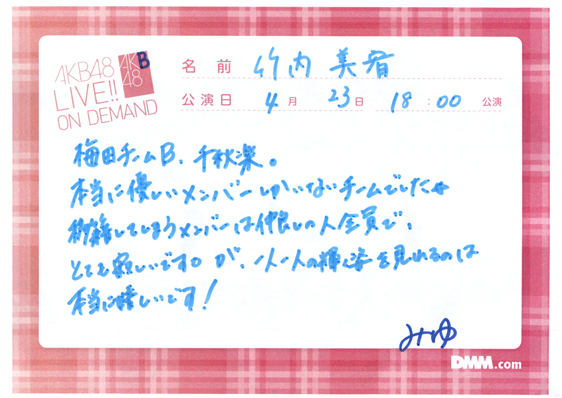 AKB48
LIVE!!
ON DEMAND
AKB
48
B
名前 竹内美宥
公演日 4月 23日 18:00 公演
梅田チームB、千秋楽。
本当に優しいメンバーしかいないチームでした
移籍してしまうメンバーは仲良しの人全員で、
とても寂しいですが、一人一人の輝く姿を見れるのは
本当に嬉しいです!
みゆ
DMM.com